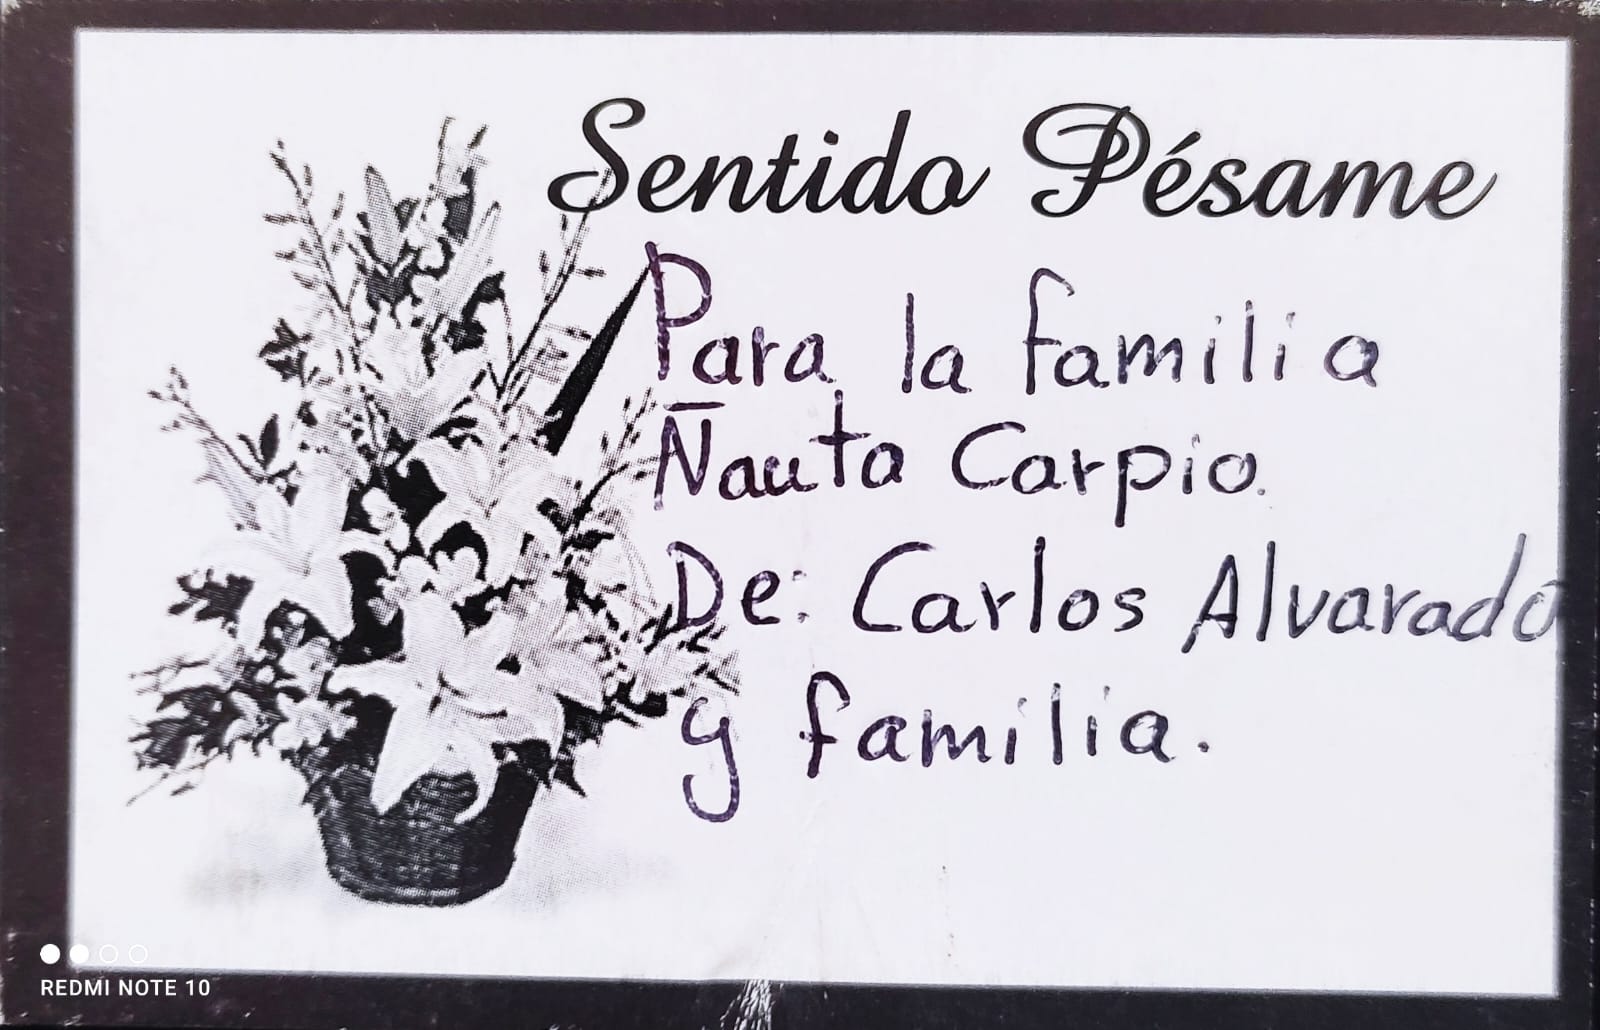 Sentido Pésame
Para la familia
Ñauta Carpio.
De: Carlos Alvarado
y familia.
REDMI NOTE 10